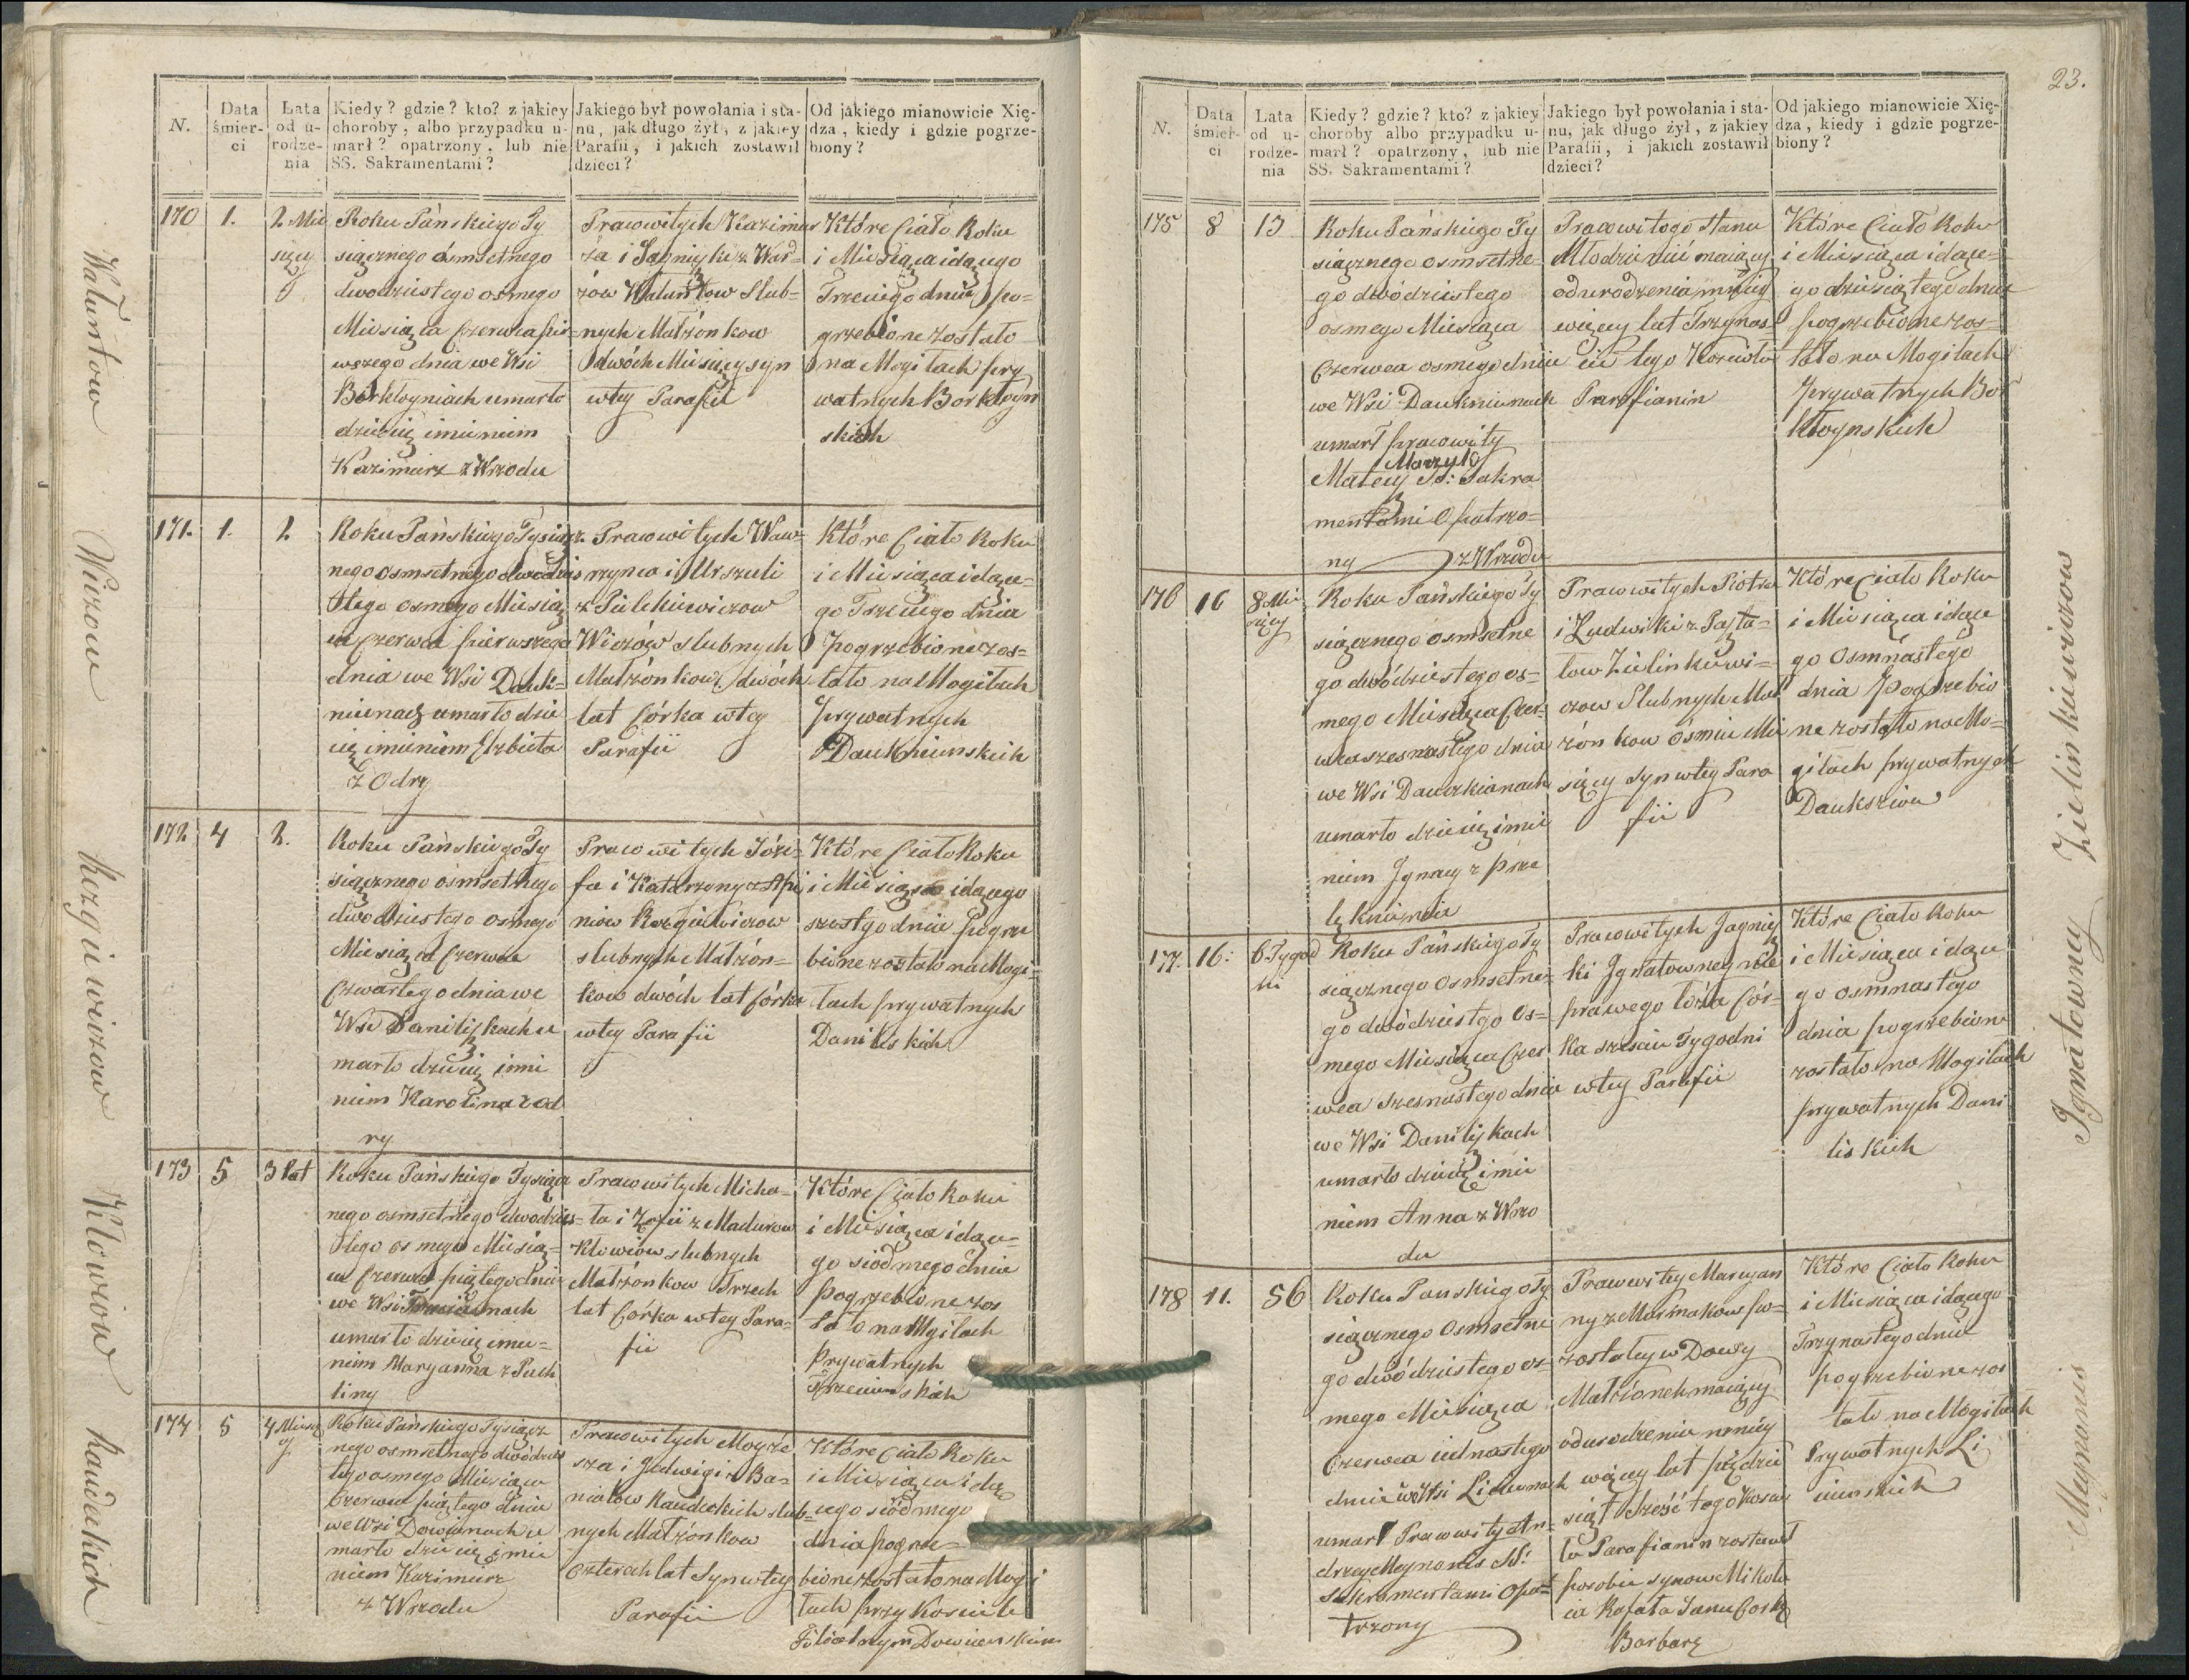 N.
Data śmier-ci
Lata od u-rodze-nia
Kiedy? gdzie? kto? z jakiey
choroby, albo przypadku u-
marł? opatrzony, lub nie
SS. Sakramentami?
Jakiego był powołania i sta-
nu, jak długo żył, z jakiey
Parafii, i jakich zostawił
dzieci?
Od jakiego mianowicie Xię-
dza, kiedy i gdzie pogrze-
biony?
170
1.
2 Mie
sięcy
Roku Pańskiego Ty
siącznego ósmsetnego
dwódziestego osmego
Miesiąca Czerwca pier=
wszego dnia we Wsi
Borkłoyniach umarło
dziecię imieniem
Kazimierz z Wrzodu
Pracowitych Kazimier
za i Jagnieszki z Ward=
zów Waluntow Slub=
nych Małżonkow
dwóch Miesięcy syn
w tey Parafii
Które Ciało Roku
i Miesiąca idącego
Trzeciego dnia po=
grzebione zostało
na Mogiłach pry
watnych Borkłoyn
skich
171.
1.
2
Roku Pańskiego Tysiącz
nego osmsetnego dwódzies
tego osmego Miesią
ca Czerwca pierwszego
dnia we Wsi Dauk=
niunach umarło dzie
cię imieniem Elzbieta
z Odry
Pracowitych Waw=
rzynca i Urszuli
z Pielekiewiczow
Wiczów slubnych
Małżonkow dwóch
lat Córka w tey
Parafii
Które Ciało Roku
i Miesiąca idące=
go Trzeciego dnia
pogrzebione zos=
tało na Mogiłach
prywatnych
Daukniunskich
172
4
2.
Roku Pańskiego Ty
siącznego osmsetnego
dwódziestego osmego
Miesiąca Czerwca
Czwartego dnia we
Wsi Daniliszkach u
marło dziecię imie
niem Karolina z od
ry
Pracowitych Józe=
fa i Katarzyny z
niow Kozgiewiczow
slubnych Małżon=
kow dwóch lat Córka
w tey Parafii
Które Ciało Roku
i Miesiąca idącego
szostego dnia pogrze
bione zostało na Mogi=
łach prywatnych
Daniliskich
173
5
3 lat
Roku Pańskiego Tysiącz
nego osmsetnego dwodzies=
tego osmego Miesią=
ca Czerwca piątego dnia
we Wsi
umarło dziecię imie=
niem Maryanna z Puch
liny
Pracowitych Micha=
ła i Zofii z Madurow
Kłowiow slubnych
Małżonkow Trzech
lat Córka w tey Para=
fii
Które Ciało Roku
i Miesiąca idące=
go siódmego dnia
pogrzebione zos
tało na Mgiłach
prywatnych
174
5
4 Miesię
cy
Roku Pańskiego Tysiącz
nego osmsetnego dwódzies
tego osmego Miesiąca
Czerwca piątego dnia
we Wsi Dowianach u
marło dziecię imie
niem Kazimierz
z Wrzodu
Pracowitych Mogże
sza i Jadwigi z Ba=
niałow Kaudzkich slub=
nych Małżonkow
czterech lat Syn w tey
Parafii
Które Ciało Roku
i Miesiąca idą
cego siódmego
dnia pogrze=
bione zostało na Mogi
łach przy Kosciele
Filialnym Dowianskim
Waluntow
Wiczow
Kozgiewiczow
Kłowiow
Kaudzkich
23.
N.
Data śmier-ci
Lata od u-rodze-nia
Kiedy? gdzie? kto? z jakiey
choroby albo przypadku u-
marł? opatrzony, lub nie
SS. Sakramentami?
Jakiego był powołania i sta-
nu, jak długo żył, z jakiey
Parafii, i jakich zostawił
dzieci?
Od jakiego mianowicie Xię-
dza, kiedy i gdzie pogrze-
biony?
175
8
13
Roku Pańskiego Ty
siącznego osmsetne
go dwódziestego
osmego Miesiąca
Czerwca osmego dnia
we Wsi Daukniunach
umarł pracowity
Marzyk
Matey SS: Sakra
mentami Opatrzo=
ny z Wrzodu
Pracowitego stanu
Młodzieniec maiący
od urodzenia mniey
więcey lat Trzynas
cie tego Koscioła
Parafianin
Które Ciało Roku
i Miesiąca idące=
go dziesiątego dnia
pogrzebione zos=
tało na Mogiłach
prywatnych Bor
kłoynskich
176
16
8 Mie
sięcy
Roku Pańskiego Ty
siącznego osmsetne
go dwódziestego os=
mego Miesiąca Czer=
wca szesnastego dnia
we Wsi Dauczkianach
umarło dziecię imie
niem Ignacy z prze
lęknienia
Pracowitych Piotra
i Ludwiki z Pasztu=
low Zielinkiewi=
czow Slubnych Mał
żonkow ósmiu Mie
sięcy Syn w tey Para
fii
Które Ciało Roku
i Miesiąca idące
go Osmnastego
dnia Pogrzebio
ne zostało na Mo=
giłach prywatnych
177.
16:
6 Tygod
ni
Roku Pańskiego Ty
siącznego Osmsetne=
go dwódziestego Os=
mego Miesiąca Czer
wca Szesnastego dnia
we Wsi Daniliszkach
umarło dziecię imie
niem Anna z Wrzo
du
Pracowitych Jagniesz
ki Ignatowney nie
prawego łoża Cór=
ka szesciu Tygodni
w tey Parafii
Które Ciało Roku
i Miesiąca idące
go osmnastego
dnia pogrzebione
zostało na Mogiłach
prywatnych Dani
liskich
178
11.
56
Roku Panskiego Ty
siącznego Osmsetne
go dwódziestego os=
mego Miesiąca
Czerwca iednastego
dnia we Wsi Liciunach
umarł Pracowity An=
drzey Meynonis SS:
Sakramentami Opa=
trzony
Pracowitey Maryan
ny z Masmakow po=
zostałey w Dowy
Małżonek maiący
od urodzenia mniey
więcey lat pięćdzie
siąt szesć tego Koscio
ła Parafianin zostawił
po sobie synow Mikoła
ia Rafała Jana Corkę
Barbarę
Które Ciało Roku
i Miesiąca idącego
Trzynastego dnia
pogrzebione zos
tało na Mogiłach
Prywatnych Li
ciunskich
Zielinkiewiczow
Ignatowney
Meynonis